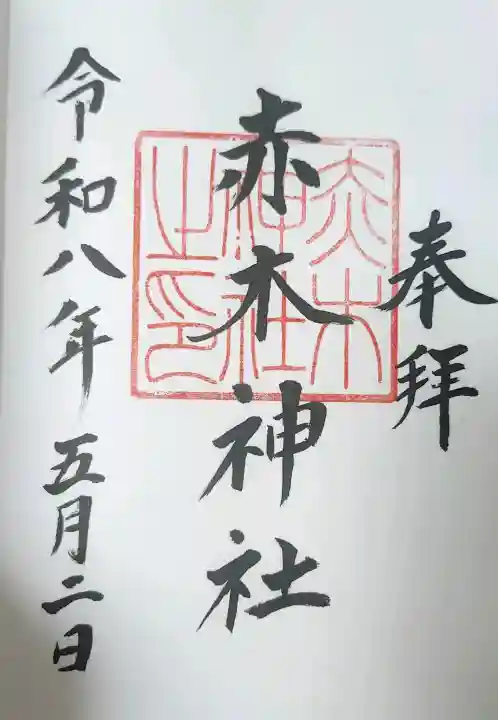 奉拝
赤木神社
赤木
神社
之印
令和八年五月二日